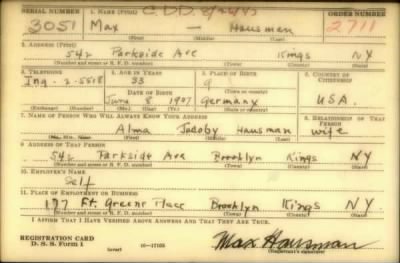 SERIAL NUMBER 1. NAME (Print) C.D.D. ORDER NUMBER
3051 Max — Hausman 2711
2. ADDRESS (Print)
542 Parkside Ave Kings NY
(Number and street or R. F. D. number) (Town) (County) (State)
3. TELEPHONE 4. AGE IN YEARS 5. PLACE OF BIRTH 6. COUNTRY OF CITIZENSHIP
Ing-2-5518 33
DATE OF BIRTH (Town or county)
June 8 1907 Germany USA.
(Exchange) (Number) (Mo.) (Day) (Yr.) (State or country)
7. NAME OF PERSON WHO WILL ALWAYS KNOW YOUR ADDRESS 8. RELATIONSHIP OF THAT PERSON
Alma Jacoby Hausman wife
(Mr., Mrs., Miss) (First) (Middle) (Last)
9. ADDRESS OF THAT PERSON
542 Parkside Ave Brooklyn Kings NY
(Number and street or R. F. D. number) (Town) (County) (State)
10. EMPLOYER'S NAME
Self
11. PLACE OF EMPLOYMENT OR BUSINESS
177 Ft. Greene Place Brooklyn Kings NY
(Number and street or R. F. D. number) (Town) (County) (State)
I AFFIRM THAT I HAVE VERIFIED ABOVE ANSWERS AND THAT THEY ARE TRUE.
REGISTRATION CARD
D. S. S. Form 1 (over) 16—17105 Max Hausman
(Registrant's signature)